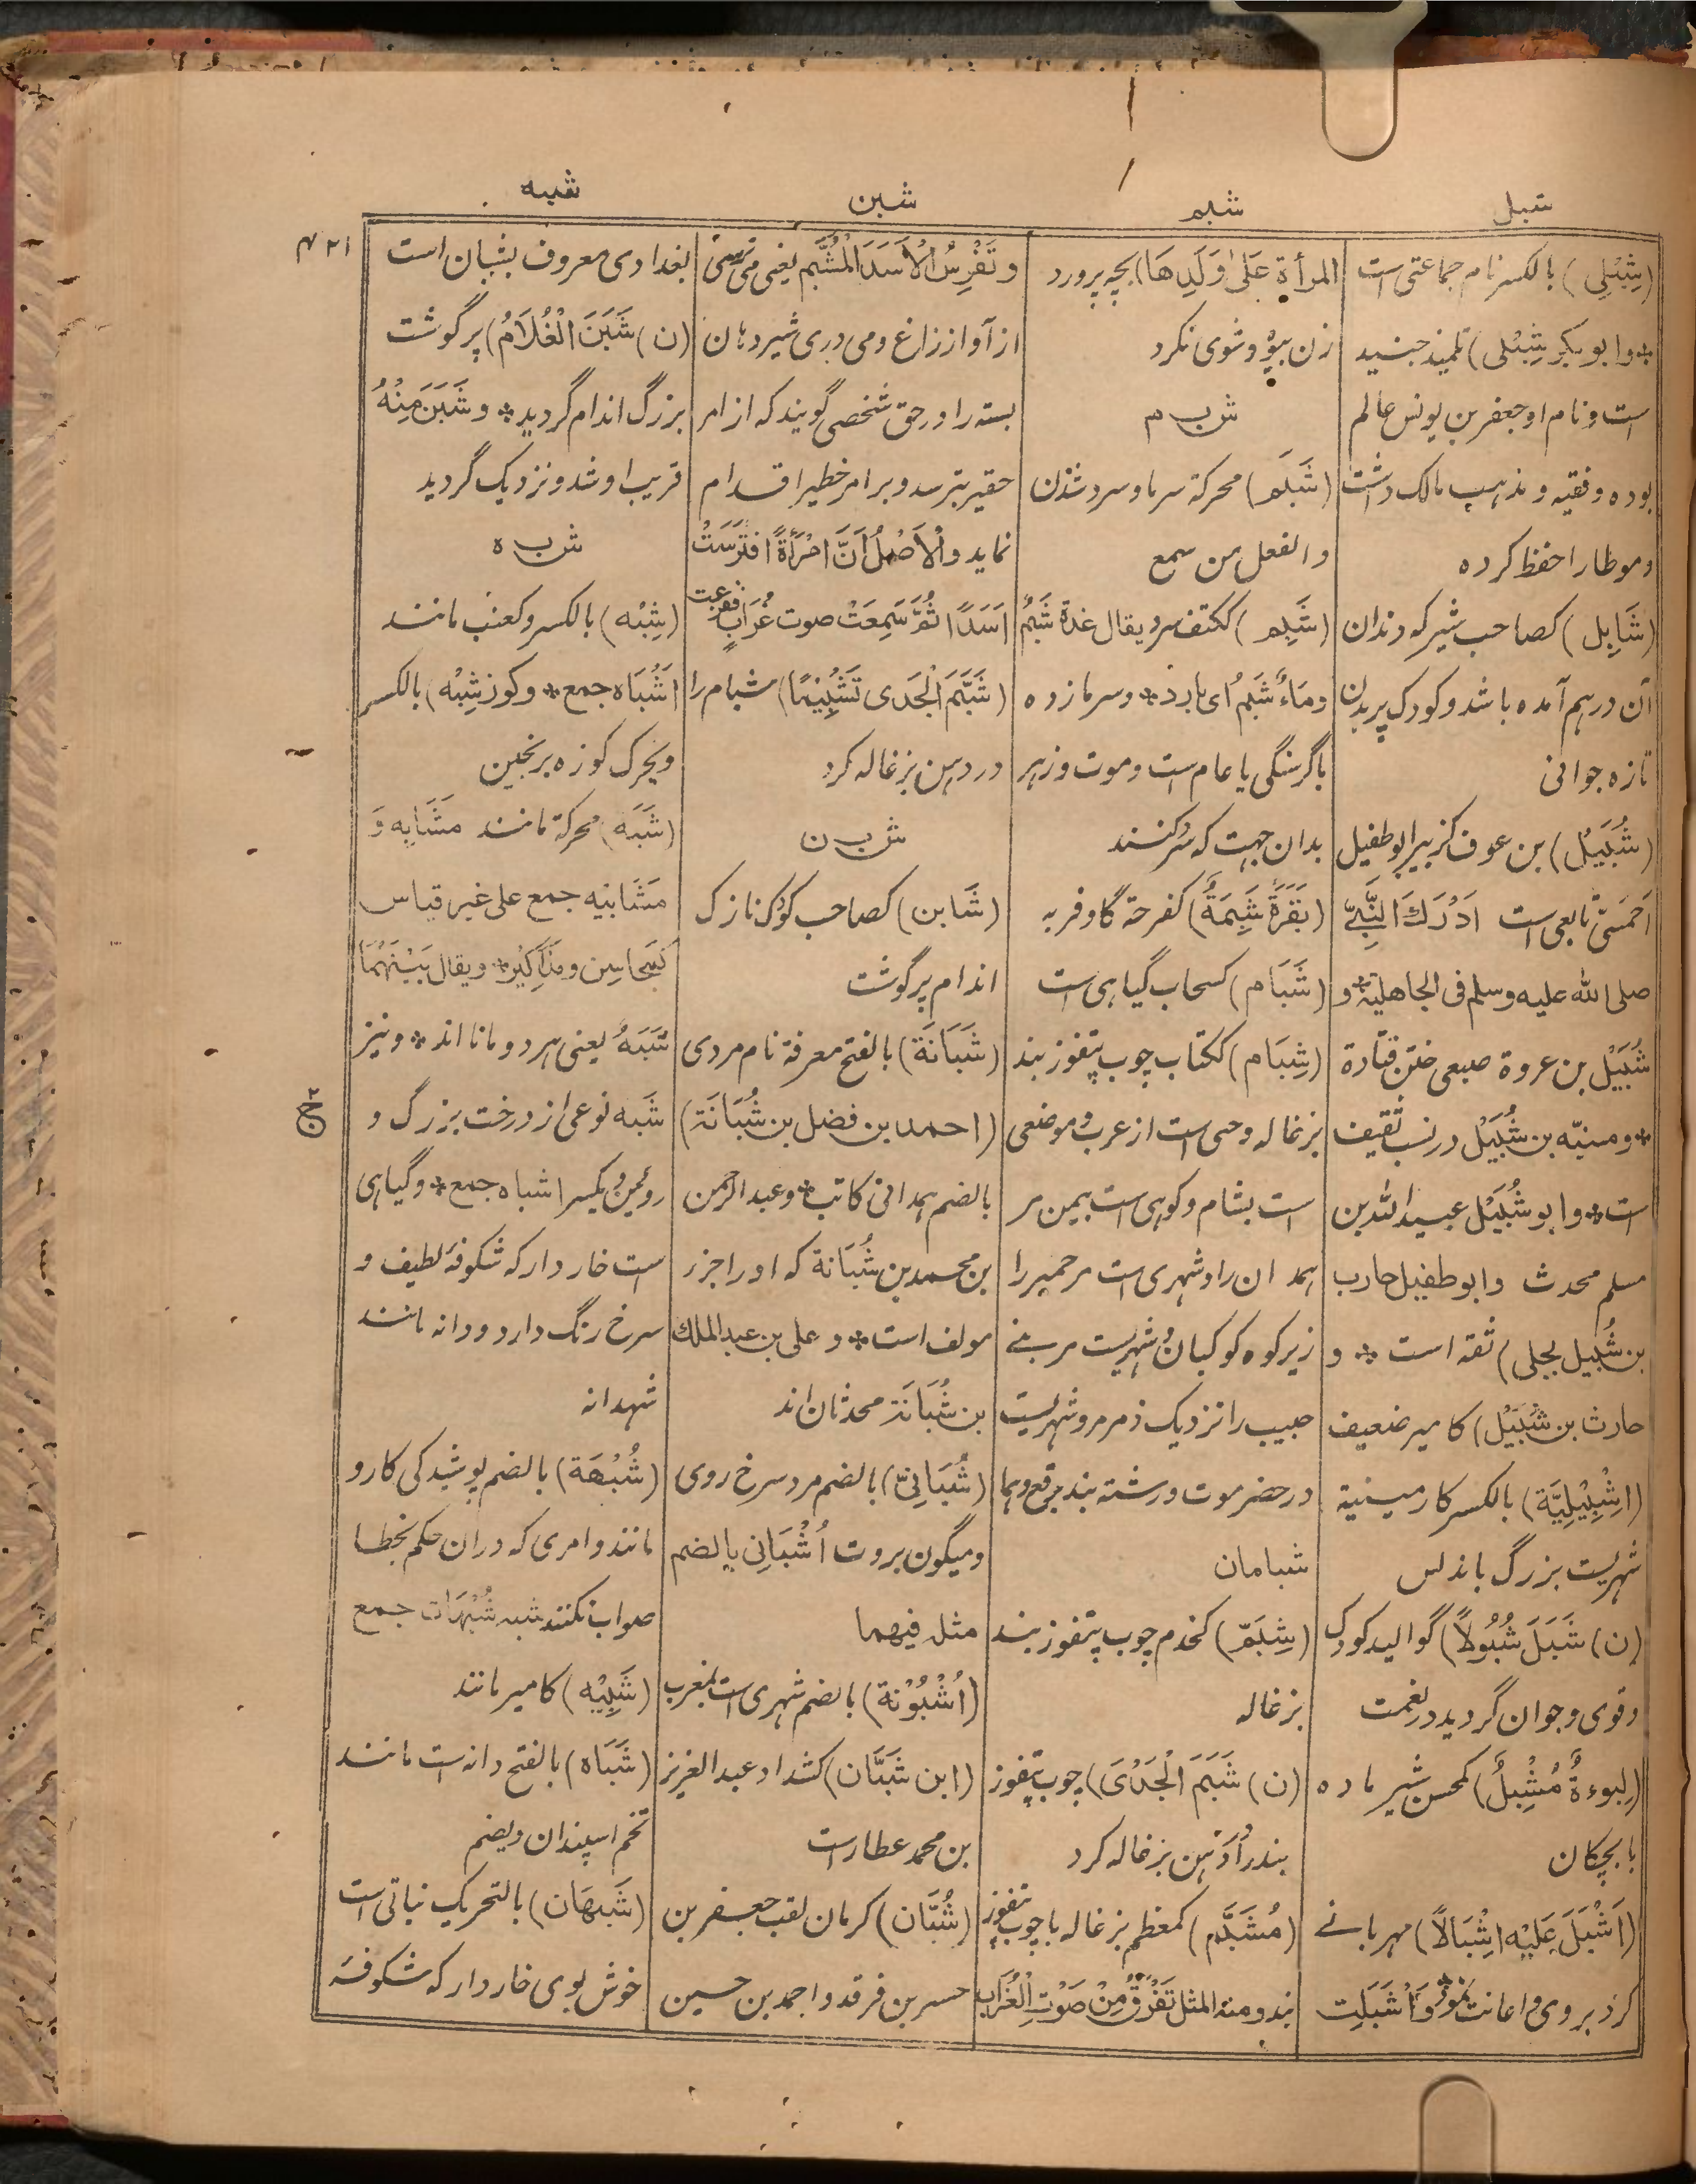 شبل
شبم
شبن
شبه
۴۲۱
(شِبْلِی) بالکسر نام جماعتی است
* و ابو بکر شِبْلی) تلمیذ جنید
است و نام او جعفر بن یونس عالم
بوده و فقیه و مذہب مالک داشت
و موطا را حفظ کرده
(شَابِل) کصاحب شیر که دندان
آن درہم آمده باشد و کودک پر بدن
تازه جوانی
(شُبَیْل) بن عوف کزبیر ابو طفیل
اَحْمَسَیّ تابعی است اَدْرَكَ النَّبِیَّ
صلی الله علیه وسلم فی الجاهلیة * و
شُبَیْل بن عروة ضبعی ختن قتادة
* و منبّه بن شُبَیْل در نسب ثقیف
است * و ابو شُبَیْل عبیدالله بن
مسلم محدث و ابو طفیل حارب
بن شُبیل بجلی) ثقه است * و
حارث بن شُبَیْل) کامیر ضعیف
(اِشْبِیْلِیَّة) بالکسر کارمینیة
شهریست بزرگ باندلس
(ن) شَبَلَ شُبُولًا) گوالید کودک
و قوی و جوان گردید در نعمت
(لبوءةٌ مُشْبِلٌ) کمحسن شیر ماده
با بچکان
(اَشْبَلَ عَلَیْه اِشْبَالًا) مهربانے
کرد بروی و اعانت نمود * وَاَشْبَلَتِ
المرأة عَلیٰ وَلَدِهَا) بچه پرورد
زن بیوه و شوی نکرد
ش ب م
(شَبَم) محرکة سرما و سرد شدن
والفعل من سمع
(شَبِم) ککتف سرد یقال غَدَاة شَبِمٌ
وَمَاءٌ شَبِمٌ ای بارد * و سرمازده
با گرسنگی یا عام است و موت و زهر
بدان جہت که سرد کنند
(بَقَرَةٌ شَبِمَةٌ) کفرحة گاو فربه
(شَبَام) کسحاب گیاهی است
(شِبَام) ککتاب چوب پتفوز بند
بزغاله و حی است از عرب و موضعی
است بشام و کوهی است بیمن مر
ہمدان را و شهری است مر حمیر را
زیر کوه کوکبان و شهریست مر بنے
حبیب را نزدیک ذمرمر و شهریست
در حضرموت و رشته بند برقع و هما
شبامان
(شِبَمّ) کخدم چوب پتفوز بند
بزغاله
(ن) شَبَمَ الْجَدْیَ) چوب پتفوز
بند در دہن بزغاله کرد
(مُشَبَّم) کمعظم بزغاله با چوب پتفوز
بند و منه المثل تَفْرَقُ مِنْ صَوْتِ الْغُرَابِ
و تَفْرِسُ الْاَسَدَ الْمُشَبَّمَ یعنی می ترسی
از آواز زاغ و می دری شیر دهان
بسته را در حق شخصی گویند که از امر
حقیر بترسد و بر امر خطیر اقدام
نماید والْاَصْلُ اَنَّ امْرَأَةً افْتَرَسَتْ
اَسَدًا ثُمَّ سَمِعَتْ صوت غُرَابٍ ففزعت
(شَبَّمَ الْجَدی تَشْبِیْمًا) شبام را
در دہن بزغاله کرد
ش ب ن
(شَابن) کصاحب کودک نازک
اندام پر گوشت
(شَبَانَة) بالفتح معرفة نام مردی
(احمد بن فضل بن شُبَانَة)
بالضم همدانی کاتب * و عبدالرحمن
بن محمد بن شُبَانَة که او را جزء
مولف است * و علی بن عبدالملک
بن شُبَانَة محدثان اند
(شُبَانِیّ) بالضم مرد سرخ روی
و میگون بروت اُشْبَانِی بالضم
مثله فیهما
(اُشْبُوْنَة) بالضم شهری است بمغرب
(ابن شَبَّان) کشداد عبدالعزیز
بن محمد عطار است
(شُبَّان) کرمان لقب جعفر بن
حسر بن فرقد و احمد بن حسین
بغدادی معروف بشبان است
(ن) شَبَنَ الْغُلَامُ) پر گوشت
بزرگ اندام گردید * و شَبَنَ مِنْهُ
قریب او شد و نزدیک گردید
ش ب ه
(شِبْه) بالکسر و کعنب مانند
اَشْبَاه جمع * و کوز شِبْه) بالکسر
و یحرک کوزه برنجین
(شَبَه) محرکة مانند مَشَابِه وَ
مَشَابیه جمع علی غیر قیاس
کَمَحَاسِن و مَذَاکِیْر * و یقال بَیْنَهُمَا
شَبَهٌ یعنی هر دو مانا اند * و نیز
شَبه نوعی از درخت بزرگ و
روئین و یکسر اشباه جمع * و گیاهی
است خاردار که شکوفهٔ لطیف و
سرخ رنگ دارد و دانه مانند
شهدانه
(شُبْهَة) بالضم پوشیدگی کار و
مانند و امری که دران حکم بخطا
صواب نکنند شبه شُبْهَات جمع
(شَبِیْه) کامیر مانند
(شَبَاه) بالفتح دانه است مانند
تخم اسپندان و یضم
(شَبَهَان) بالتحریک نباتی است
خوش بوی خاردار که شکوفهٔ